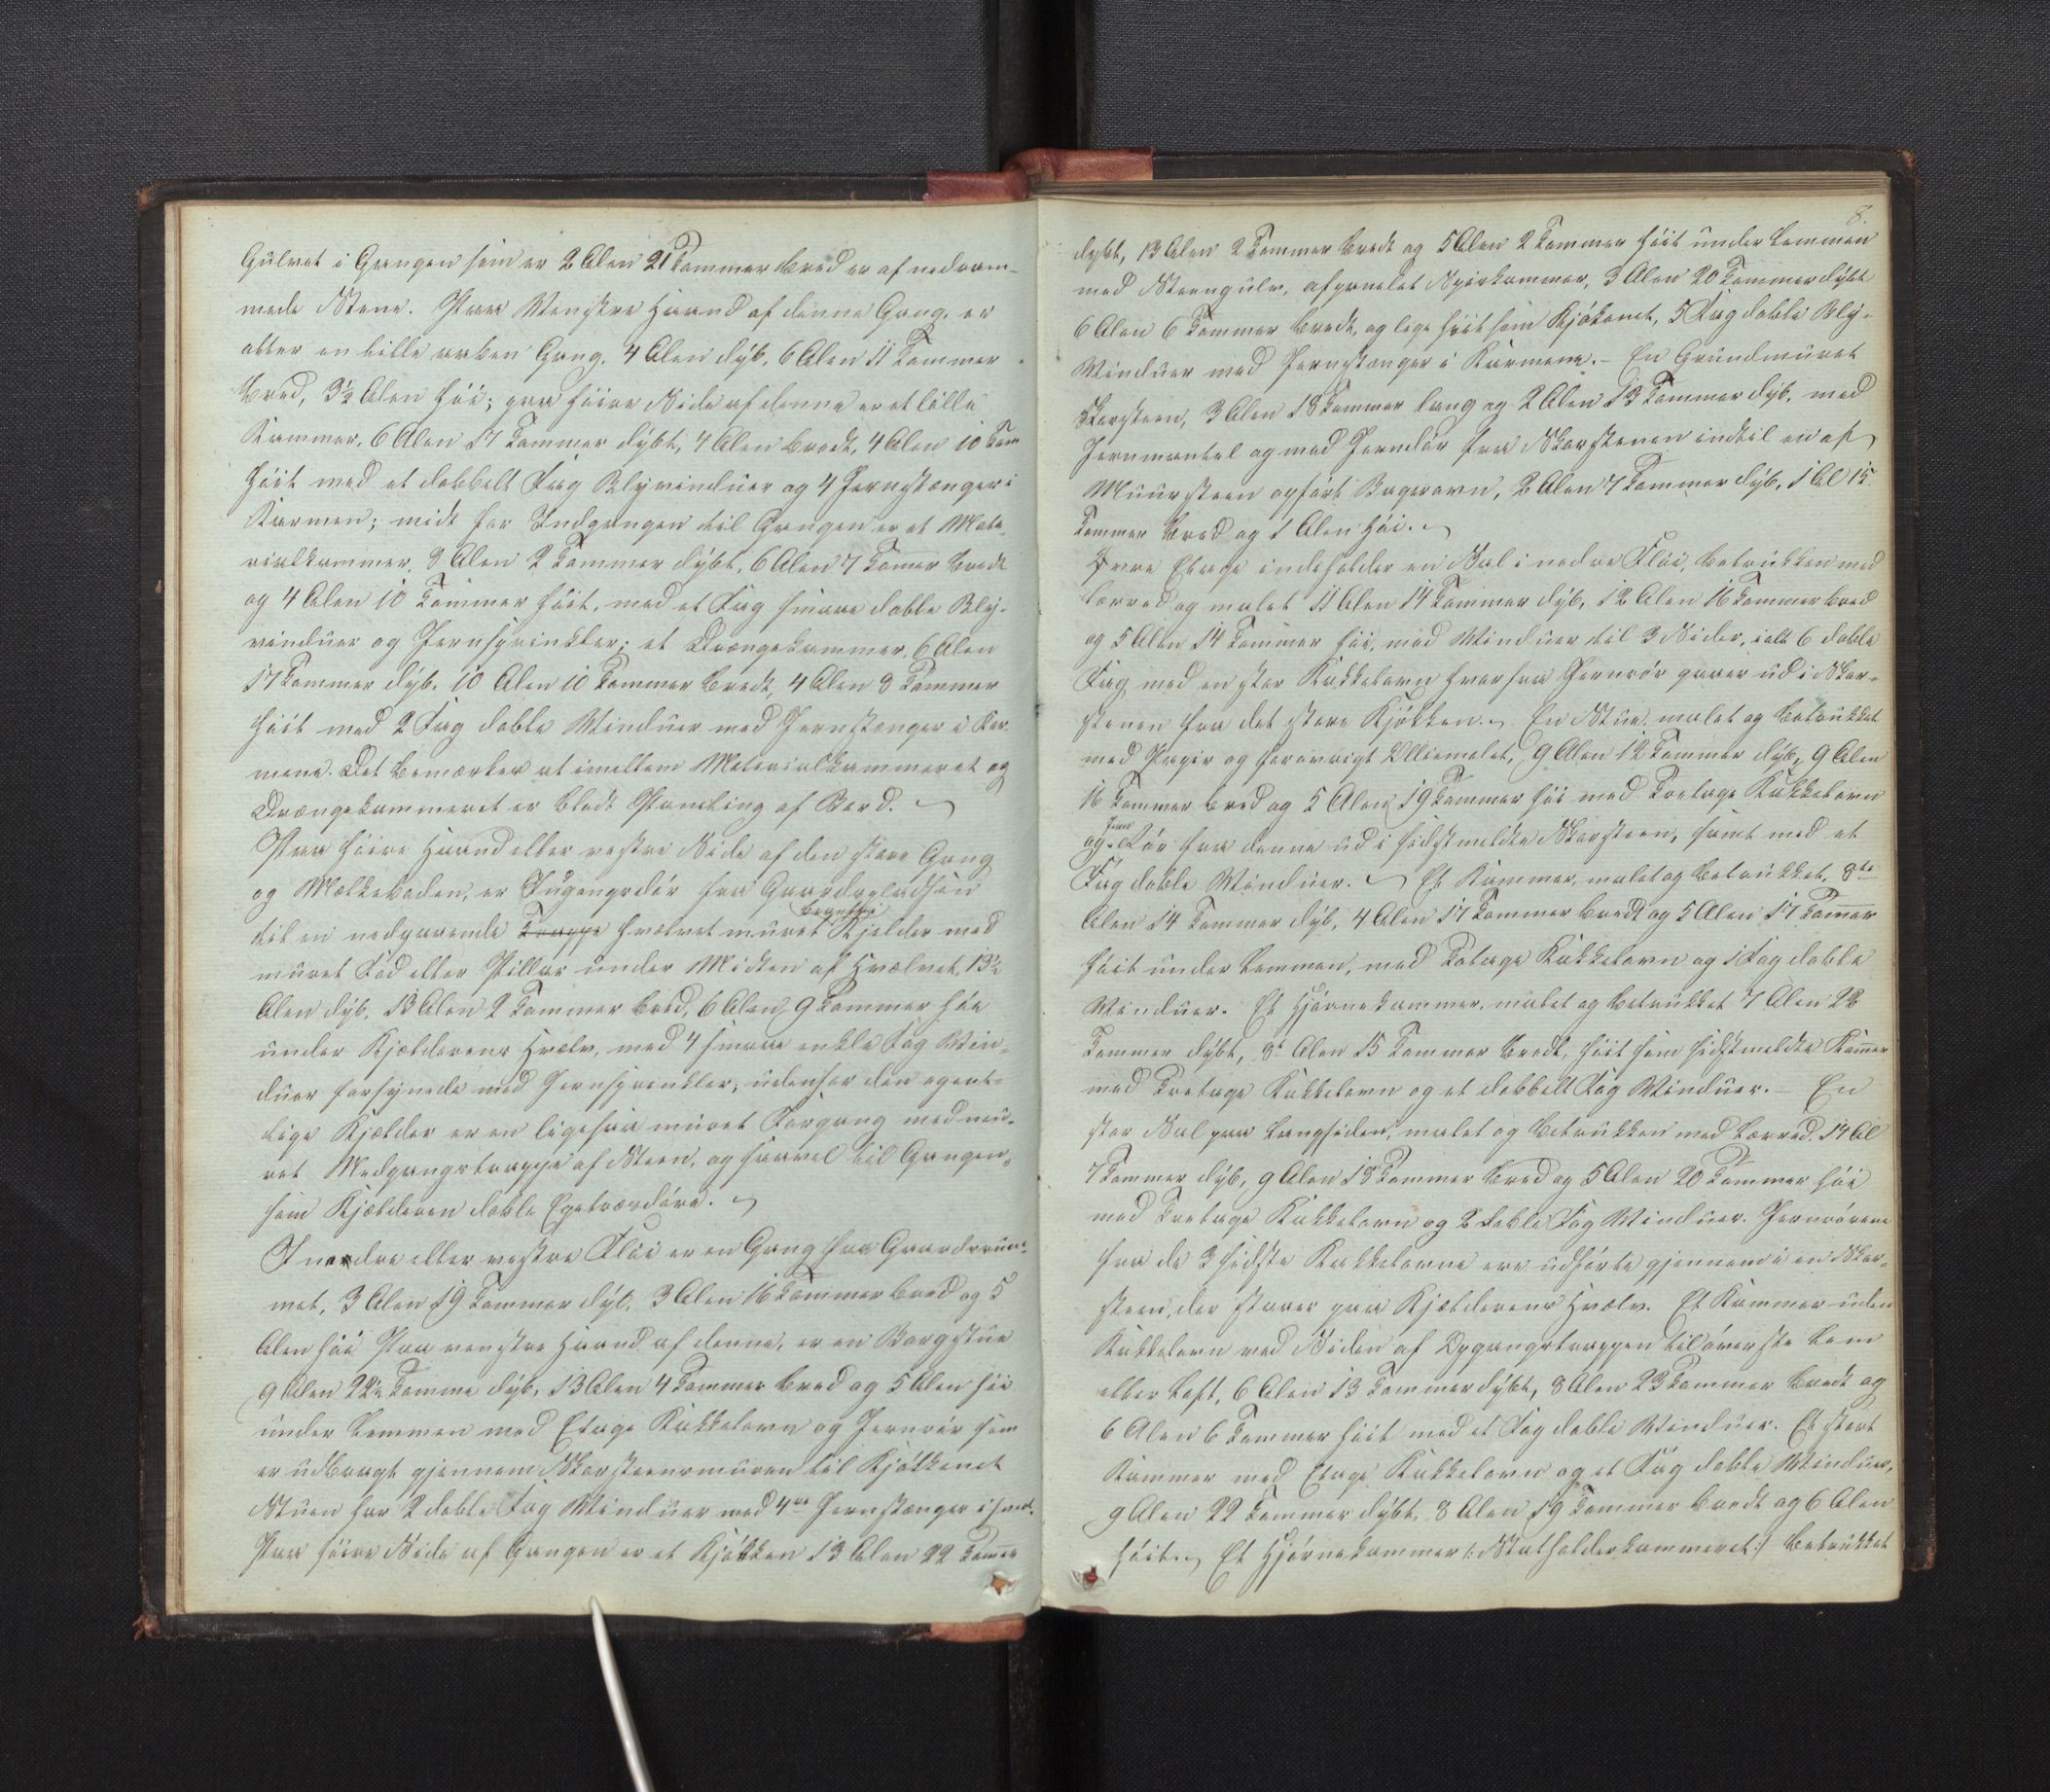 Gulvet i Gangen som er 2 Alen 21 Tommer bred er af nedram-
mede Stene. Paa Venstre Haand af denne Gang, er
atter en lille aaben Gang, 4 Alen dyb, 6 Alen 11 Tommer
bred, 3½ Alen høi; paa høire Side af denne er et lille
Kammer, 6 Alen 17 Tommer dÿbt, 4 Alen bredt, 4 Alen 10 Tom
høit med et dobbelt Fag Blyvinduer og 4 Jernstænger i
Karmen; midt for Indgangen til Gangen er et Mate-
rialkammer, 8 Alen 2 Tommer dÿbt, 6 Alen 7 Tomer bredt
og 4 Alen 10 Tommer høit, med et Fag smaae doble Bly-
vinduer og Jernsprinkler; et Drengekammer, 6 Alen
17 Tommer dyb, 10 Alen 10 Tommer bredt, 4 Alen 8 Tommer
høit med 2 Fag doble Vinduer med Jernstænger i Kar-
mene. Det bemærkes at imellem Materialkammeret og
Drengekammeret er blodt Paneling af Bord.
Paa høire Haand eller vestre Side af den store Gang
og Melkeboden, er Indgangsdør fra Gaardspladsen
til en nedgaaende Trappe hvælvet muret Kjelder med
muret Fod eller Pillar under Midten af Hvælvet, 13½
Alen dyb, 13 Alen 2 Tommer bred, 6 Alen 9 Tommer høi
under Kjelderens Hvælv, med 4 smaae enkle Fag Vin-
duer forsynede med Jernsprinkler; udenfor den egent-
lige Kjelder er en ligesaa muret Forgang med mu-
ret Nedgangstrappe af Steen, og saavel til Gangen
som Kjelderen doble Egetræsdøre.
I nordre eller vestre Fløi er en Gang fra Gaardsrum-
met, 3 Alen 19 Tommer dyb, 3 Alen 16 Tommer bred og 5
Alen høi Paa venstre Haand af denne, er en Borgstue
9 Alen 22½ Tomme dyb, 13 Alen 4 Tommer bred og 5 Alen høi
under Lemmen med Etage Kakkelovn og Jernrør som
er udbragt gjennem Skorsteensmuren til Kjøkkenet
Stuen har 2 doble Fag Vinduer med 4re Jernstænger i hvert.
Paa høire Side af Gangen er et Kjøkken 13 Alen 22 Tommer
8.
dybt, 13 Alen 2 Tommer bredt og 5 Alen 2 Tommer høit under Lemmen
med Steengulv, afpanelet Spiskammer, 3 Alen 20 Tommer dÿbt
6 Alen 6 Tommer bredt, og lige høit som Kjøkenet, 5 Fag doble Bly-
Vinduer med Jernstænger i Karmene. - En Grundmuret
Skorsteen, 3 Alen 18 Tommer lang og 2 Alen 13 Tommer dyb, med
Jernmantel og med Jerndør fra Skorstenen indtil en af
Muursteen opført Bagerovn, 2 Alen 7 Tommer dyb, 1 Al 15
Tommer bred og 1 Alen høi.
Øvre Etage indeholder en Sal i nedre Fløi, betrukken med
Lærred og malet 11 Alen 14 Tommer dyb, 12 Alen 16 Tommer bred
og 5 Alen 14 Tommer høi, med Vinduer til 3 Sider, ialt 6 doble
Fag med en stor Kakkelovn hvorfra Jernrør gaaer ud i Skor-
stenen fra det store Kjøkken. En Stue, malet og betrukket
med Papir og forøvrigt Olliemalet, 9 Alen 12 Tommer dyb, 9 Alen
16 Tommer bred og 5 Alen 19 Tommer høi med Toetage Kakkelovn
og Jern Rør fra denne ud i sidstmeldte Skorsteen, samt med et
Fag doble Vinduer. Et Kammer, malet og betrukket, 8te
Alen 14 Tommer dyb, 4 Alen 17 Tommer bredt og 5 Alen 17 Tommer
høit under Lemmen, med Toetage Kakkelovn og 1 Fag doble
Vinduer. Et Hjørnekammer, malet og betrukket 7 Alen 22
Tommer dybt, 8t Alen 15 Tommer bredt, høit som sidstmeldte Kamer
med Toetage Kakkelovn og et dobbelt Fag Vinduer. - En
stor Sal paa Langsiden, malet og betrukken med Lærred, 14 Al
7 Tommer dyb, 9 Alen 18 Tommer bred og 5 Alen 20 Tommer høi
med Tretage Kakkelovn og 2 doble Fag Vinduer. Jernrørene
fra de 3 sidste Kakkelovne ere udførte gjennem i en Skor-
steen, der staaer paa Kjelderens Hvælv. Et Kammer uden
Kakkelovn ved Siden af Opgangstrappen til øverste Lem
eller Loft, 6 Alen 13 Tommer dÿbt, 8 Alen 23 Tommer bredt og
6 Alen 6 Tommer høit med et Fag doble Vinduer. Et stort
Kammer med Etage Kakkelovn og et Fag doble Vinduer,
9 Alen 22 Tommer dybt, 8 Alen 19 Tommer bredt og 6 Alen
høit. Et Hjørnekammer /: Statholderkammeret :/ betrukket